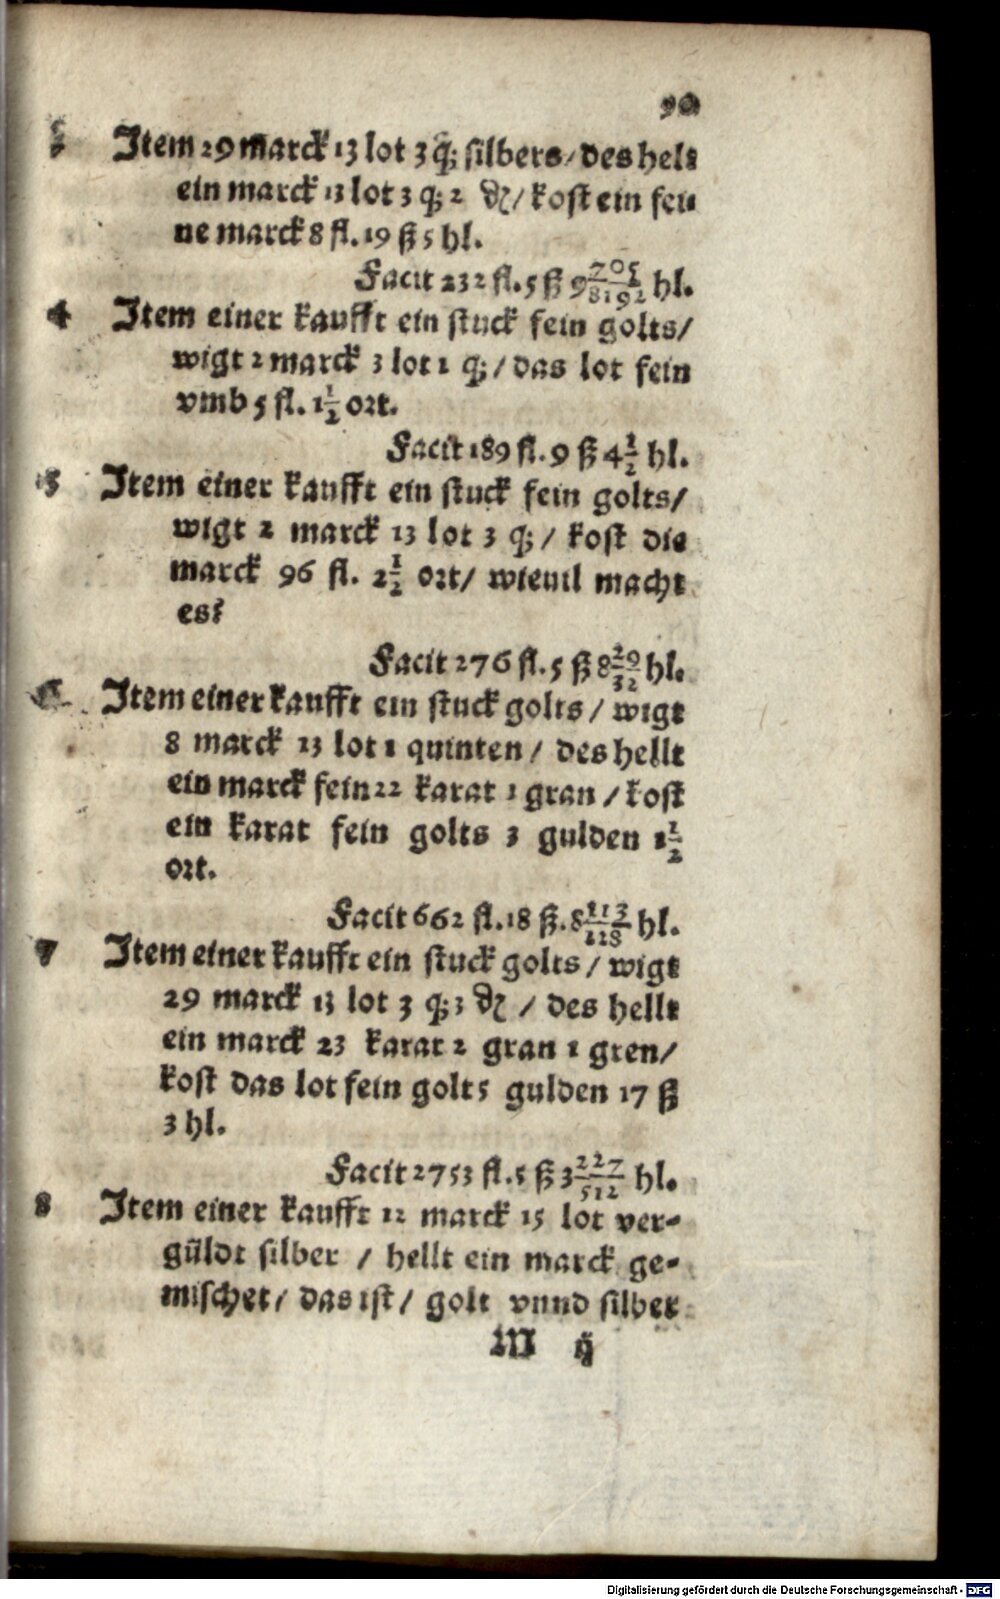 90
3 Item 29 marck 13 lot 3 q; silbers / des helt
ein marck 13 lot 3 q; 2 ₰ / kost ein fei⸗
ne marck 8 fl. 19 ß 5 hl.
Facit 232 fl. 5 ß 9 705/8192 hl.
4 Item einer kaufft ein stuck fein golts /
wigt 2 marck 3 lot 1 q; / das lot fein
vmb 5 fl. 1 1/2 ort.
Facit 189 fl. 9 ß 4 1/2 hl.
5 Item einer kaufft ein stuck fein golts /
wigt 2 marck 13 lot 3 q; / kost die
marck 96 fl. 2 1/2 ort / wieuil macht
es?
Facit 276 fl. 5 ß 8 29/32 hl.
6 Item einer kaufft ein stuck golts / wigt
8 marck 13 lot 1 quinten / des hellt
ein marck fein 22 karat 1 gran / kost
ein karat fein golts 3 gulden 1 1/2
ort.
Facit 662 fl. 18 ß. 8 113/128 hl.
7 Item einer kaufft ein stuck golts / wigt
29 marck 13 lot 3 q; 3 ₰ / des hellt
ein marck 23 karat 2 gran 1 gren /
kost das lot fein golt 5 gulden 17 ß
3 hl.
Facit 2753 fl. 5 ß 3 227/512 hl.
8 Item einer kaufft 12 marck 15 lot ver⸗
güldt silber / hellt ein marck ge⸗
mischet / das ist / golt vnnd silber
M ij
Digitalisierung gefördert durch die Deutsche Forschungsgemeinschaft - DFG